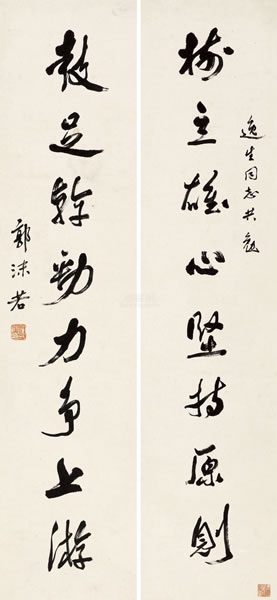 逸生同志共勉
树立雄心坚持原则
鼓足幹勁力争上游
郭沫若